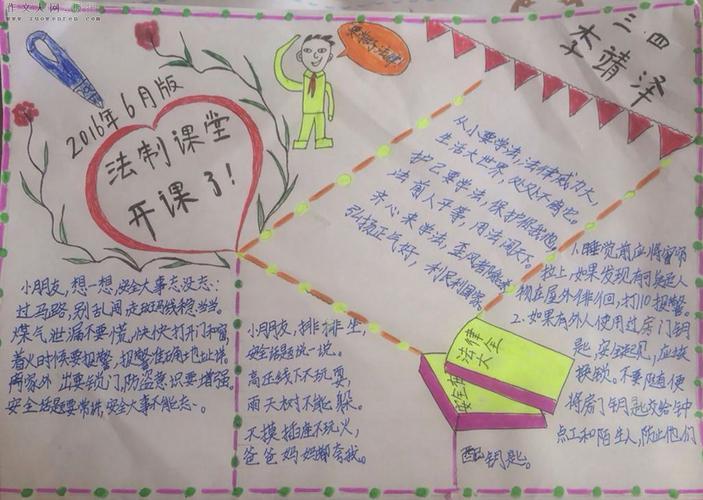 作文人网
www.zuowenren.com
2016年6月版
法制课堂
开课了!
三.四
李靖泽
从小要学法,法律威力大,
生活大世界,处处不离它。
护己要学法,保护
法前人平等,用法闯天下。
齐心来学法,歪风
弘扬正气好,利民利国家。
小朋友,想一想,安全大事忘没忘:
过马路,别乱闯,走斑马线稳当当。
煤气泄漏不要慌,快快打开门和窗
着火时候要报警,报警准确地址详。
两家外出要锁门,防盗意识要增强。
安全话题要常讲,安全大事不能忘。
小朋友,排排坐,
安全话题说一说。
高压线下不玩耍,
雨天树下不能躲。
不摸插座不玩火,
爸爸妈妈都夸我。
律全
法大
安全
小睡觉前应将窗帘
拉上,如果发现有可疑人
物在屋外徘徊,打110报警。
2.如果有外人使用过房门钥
匙,安全起见,应该
换锁。不要随便
将房门钥匙交给钟
点工和陌生人,防止他们
配钥匙。